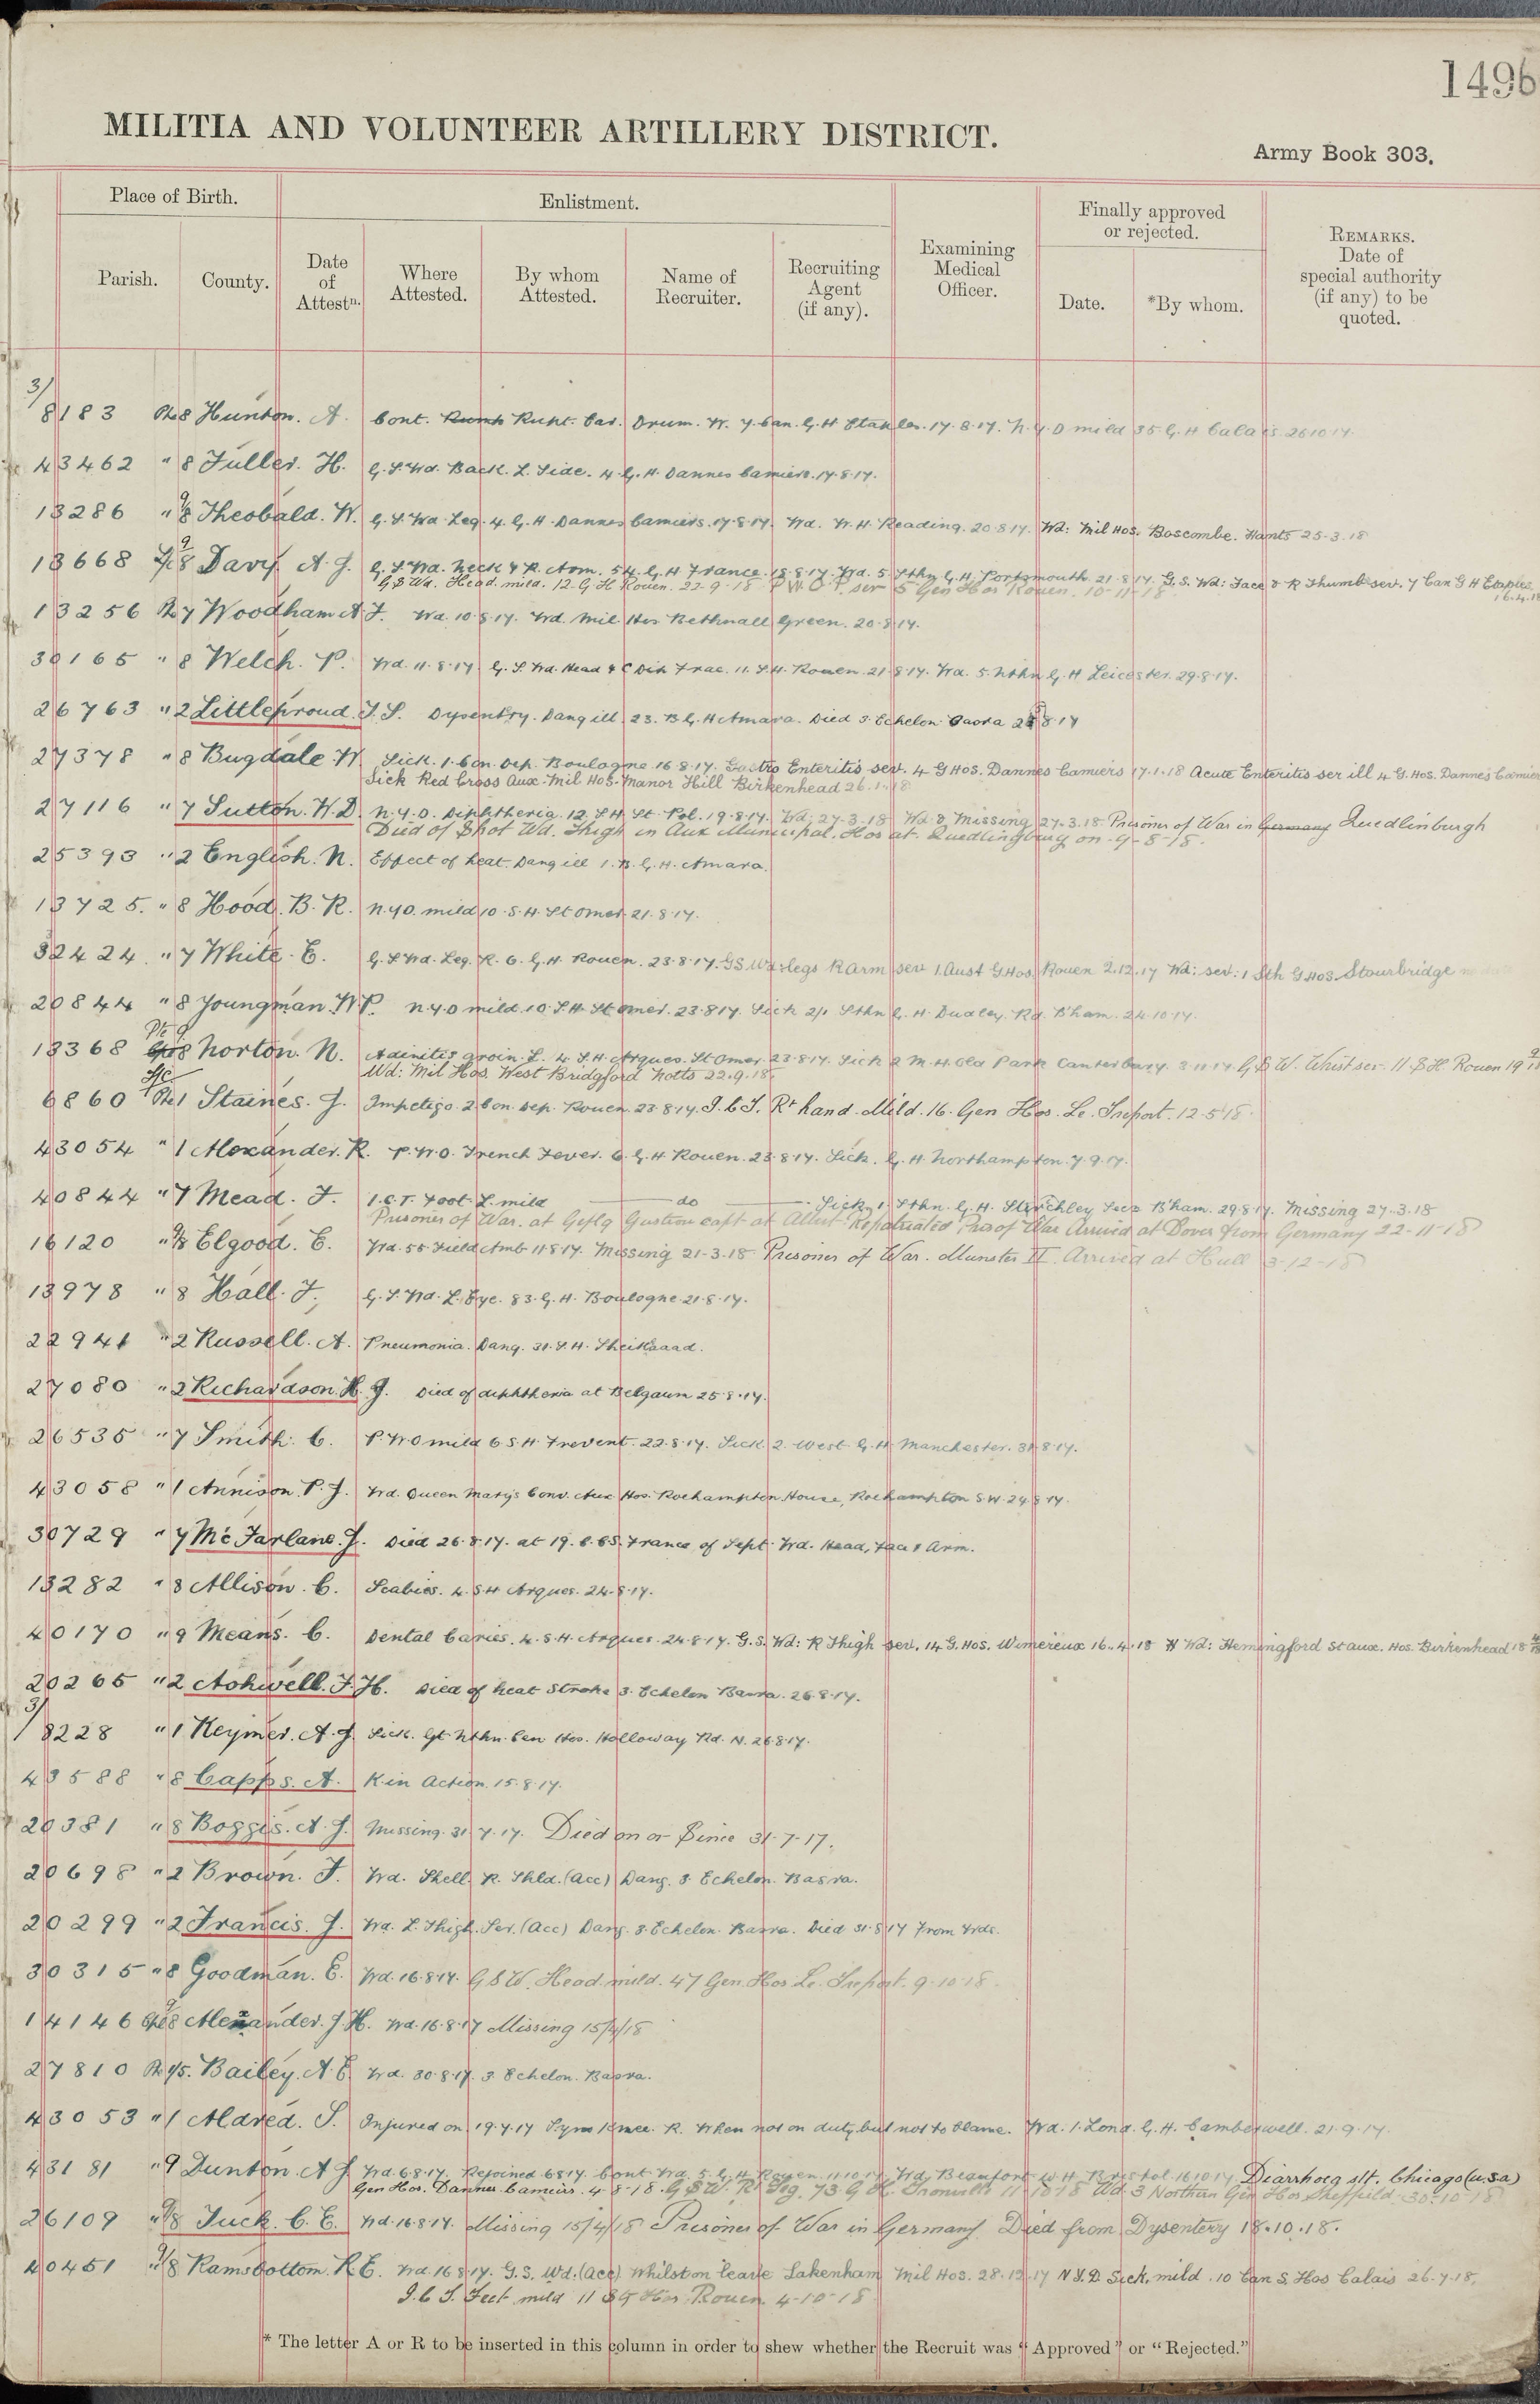 1496
MILITIA AND VOLUNTEER ARTILLERY DISTRICT.
Army Book 303.
Place of Birth.
Enlistment.
Finally approved or rejected.
Parish.
County.
Date of Attestn.
Where Attested.
By whom Attested.
Name of Recruiter.
Recruiting Agent (if any).
Examining Medical Officer.
Date.
*By whom.
REMARKS. Date of special authority (if any) to be quoted.
3/8183 Pte 8 Hunton. A. Cont. Rupt. Ear. Drum. W. 7. Can. G.H. Etaples. 17.8.17. N.Y.D mild 35 G.H Calais 26 10 17.
43462 " 8 Fuller. H. G.S. Wd. Back. L. Side. 4. G.H. Dannes Camiers. 17.8.17.
13286 " 9/8 Theobald. W. G.S. Wd. Leg. 4. G.H. Dannes Camiers. 17.8.17. Wd. W.H. Reading. 20.8.17. Wd: Mil Hos. Boscombe. Hants 25-3-18
13668 L/C 9/8 Davy A.J. G.S. Wd. Neck & R. Arm. 54. G.H France. 18.8.17. Wd. 5 Sthn G.H. Portsmouth. 21.8.17. G.S. Wd: Face & R Thumb sev. 7 Can G H Etaples 16.4.18
G S Wd. Head. mild. 12. G H Rouen. 22-9-18 5 Gen Hos Rouen. 10-11-18
13256 Pte 7 Woodham A.J. Wd. 10.8.17. Wd. Mil Hos Bethnall Green. 20.8.17.
30165 " 8 Welch. P. Wd. 11.8.17 G.S. Wd. Head & C Dis Frac. 11. S.H. Rouen. 21.8.17. Wd. 5. Nthn G.H. Leicester. 29.8.17.
26763 " 2 Littleproud. J.S. Dysentry. Dang ill 23. B.G.H Amara. Died 3. Echelon Basra 8.17
27378 " 8 Bugdale. W. Sick. 1. Con. Dep. Boulogne. 16.8.17. Gastro Enteritis sev. 4 G Hos. Dannes Camiers 17.1.18 Acute Enteritis ser ill 4. G. Hos. Dannes Camiers
Sick Red Cross Aux. Mil Hos. Manor Hill Birkenhead 26.1.18
27116 " 7 Sutton. W.D. N.Y.D. Diphtheria. 12. S.H. St. Pol. 19.8.17. Wd; 27-3-18 Wd & Missing 27-3-18 Prisoner of War in Germany Quedlinburgh
Died of Shot Wd. Thigh in Aux Municipal. Hos at Quedlingburg on 9-8-18.
25393 " 2 English. N. Effect of heat. Dang ill 1. B. G. H. Amara.
13725. " 8 Hood. B.R. N.Y.D. mild 10. S.H. St Omer. 21.8.17.
32424 " 7 White. E. G.S. Wd. Leg. R. 6. G.H. Rouen. 23.8.17. G.S. Wd: legs R arm sev 1. Aust G. Hos. Rouen 2.12.17 Wd: sev: 1 Sth G Hos. Stourbridge
20844 " 8 Youngman. W.P. N.Y.D mild. 10. S.H. St Omer. 23.8.17. Sick 2/1 Sthn G.H. Dudley. Rd. B'ham. 24.10.17.
13368 Pte 9 Norton. N. Adinitis groin. L. 4. S.H. Arques. St Omer. 23.8.17. Sick 2 M.H. Old Park Canterbury. G S W. Whist ser. 11. S H Rouen 19
Wd: Mil Hos. West Bridgford Notts 22.9.18.
6860 Pte 1 Staines. J. Impetigo. 2 Con. Dep. Rouen. 23.8.17. I.C.T. Rt hand. Mild. 16. Gen Hos. Le. Treport. 12-5-18.
43054 " 1 Alexander. R. P.U.O. Trench Fever. 6. G.H. Rouen. 23.8.17. Sick. G.H. Northampton. 7.9.17.
40844 " 7 Mead. F. I.C.T. Foot. L. mild do Sick. 1 Sthn. G.H. Stirchley Secs B'ham. 29.8.17. Missing 27-3-18
Prisoner of War. at capt at Albert Repatriated Pris of War Arrived at Dover from Germany 22-11-18
16120 " 9/8 Elgood. E. Wd. 55 Field Amb 11.8.17. Missing 21-3-18 Prisoner of War. Munster II. Arrived at Hull 3-12-18
13978 " 8 Hall. F. G.S. Wd. L. Eye. 83. G.H. Boulogne 21.8.17.
22941 " 2 Russell. A. Pneumonia. Dang. 31. S.H. Sheiksaad.
27080 " 2 Richardson. H.J. Died of diphtheria at Belgaum 25.8.17.
26535 " 7 Smith. C. P.U.O mild 6 S.H. Frevent. 22.8.17. Sick. 2. West. G.H. Manchester. 31.8.17.
43058 " 1 Annison. P.J. Wd. Queen Marys Conv. Aux Hos. Roehampton House, Roehampton S.W. 24.8.17.
30729 " 7 McFarlane. J. Died 26.8.17. at 19. C.C.S. France of Sept. Wd. Head, Face & Arm.
13282 " 8 Allison. C. Scabies. 4. S.H Arques. 24.8.17.
40170 " 9 Means. C. Dental Caries. 4. S.H. Arques. 24.8.17. G.S. Wd: R Thigh sev. 14 G. Hos. Wimereux 16.4.18 Wd: Hemingford St Aux. Hos. Birkenhead 18
20265 " 2 Ashwell. F.H. Died of heat Stroke 3. Echelon Basra. 26.8.17.
3/8228 " 1 Keymer. A.J. Sick. Gt Nthn. Cen Hos. Holloway Rd. N. 26.8.17.
43588 " 8 Capps. A. K. in Action. 15.8.17.
20381 " 8 Boggis. A.J. Missing. 31.7.17. Died on or Since 31-7-17.
20698 " 2 Brown. F. Wd. Shell R. Shld. (Acc) Dang. 3 Echelon. Basra.
20299 " 2 Francis. J. Wd. L. Thigh. Ser. (Acc) Dang. 3. Echelon. Basra. Died 31.8.17 from Wds.
30315 " 8 Goodman. E. Wd. 16.8.17. G S W. Head mild. 47 Gen. Hos Le. Treport. 9-10-18.
14146 8 Alexander. J.H. Wd. 16.8.17 Missing 15/4/18
27810 Pte 1/5. Bailey. A.E. Wd. 30.8.17. 3. Echelon. Basra.
43053 " 1 Aldred. S. Injured on 19.7.17 Knee. R. When not on duty, but not to blame. Wd. 1. Lond. G.H. Camberwell. 21.9.17.
43181 " 9 Dunton. A J Wd. 6.8.17. Rejoined 6.8.17. Cont. Wd. 5. G.H. Rouen. 11.10.17. Wd. Beaufort W.H. Bristol. 16.10.17 Diarrhoea slt. Chicago (U.S.A)
Gen Hos. Dannes Camiers. 4-8-18. G S W. Rt Leg. 73 G H. Trouville 11-10-18 Wd. 3 Northern Gen Hos Sheffield 30-10-18
26109 " 9/8 Tuck. C.E. Wd. 16.8.17. Missing 15/4/18 Prisoner of War in Germany Died from Dysentery 18.10.18.
40451 " 9/8 Ramsbottom. R.E. Wd. 16.8.17. G.S. Wd. (Acc) Whilst on leave Lakenham Mil Hos. 28.12.17 N.Y.D. Sick. mild. 10 Can S. Hos Calais 26-7-18.
I.C.T. Feet mild 11 St Hos Rouen. 4-10-18
* The letter A or R to be inserted in this column in order to shew whether the Recruit was "Approved" or "Rejected."